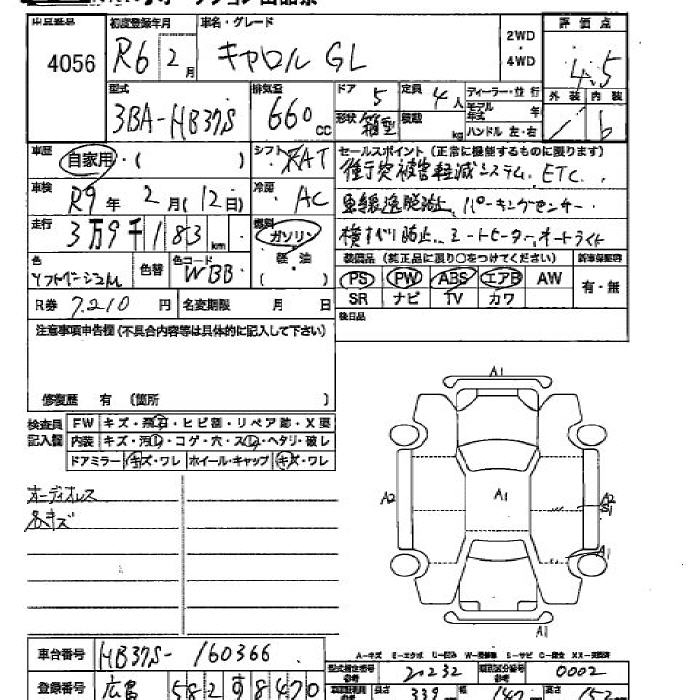 出品番号 初度登録年月 車名・グレード 2WD・4WD 評価点
4056 R6 2月 キャロル GL 4.5
型式 排気量 ドア 5 定員 4人 ディーラー・並行 外装 内装
3BA-HB37S 660cc 形状 箱型 積載 kg モデル年式 年 ハンドル 左・右 b
車歴 自家用・( ) シフト AT セールスポイント(正常に機能するものに限ります)
衝突被害軽減システム、ETC、
車検 R9年 2月(12日) 冷房 AC 車線逸脱防止、パーキングセンサー
走行 3万9千183km 燃料 ガソリン 軽・油 ( ) 横すべり防止、シートヒーター、オートライト
色 ソフトベージュM 色替 色コード WBB 装備品(純正品に限り○をつけてください) 新車保証書
PS PW ABS エアB AW 有・無
R券 7,210円 名変期限 月 日 SR ナビ TV カワ
注意事項申告欄(不具合内容等は具体的に記入して下さい) 後日品
修復歴 有 (箇所 )
検査員記入欄 FW キズ・飛石・ヒビ割・リペア跡・X要
内装 キズ・汚れ・コゲ・穴・スレ・ヘタリ・破レ
ドアミラー キズ・ワレ ホイール・キャップ キズ・ワレ
オーディオレス
各キズ
A1
A2 A1 A2
S1
A1
A1
車台番号 HB37S-160366
登録番号 広島 582 す 8470
型式指定番号 参考 20232 類別区分番号 参考 0002
長さ 339 幅 147 高さ 152